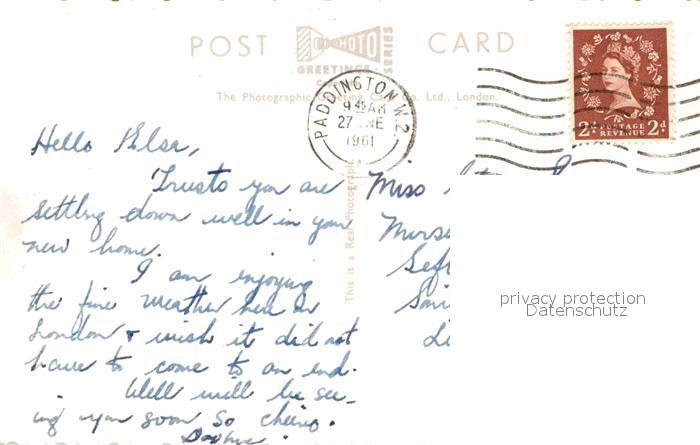 POST CARD
PHOTO
GREETINGS SERIES
The Photographic Greeting Card Co. Ltd., London.
PADDINGTON W.2.
9 45 AM
27 NE
1961
2d POSTAGE REVENUE 2d
Hello Elsa,
Trusto you are
settling down well in your
new home.
I am enjoying
the fine weather here in
London & wish it did not
have to come to an end.
Well will be see-
ing you soon so cheerio.
This is a Real Photograph
Miss
privacy protection
Datenschutz